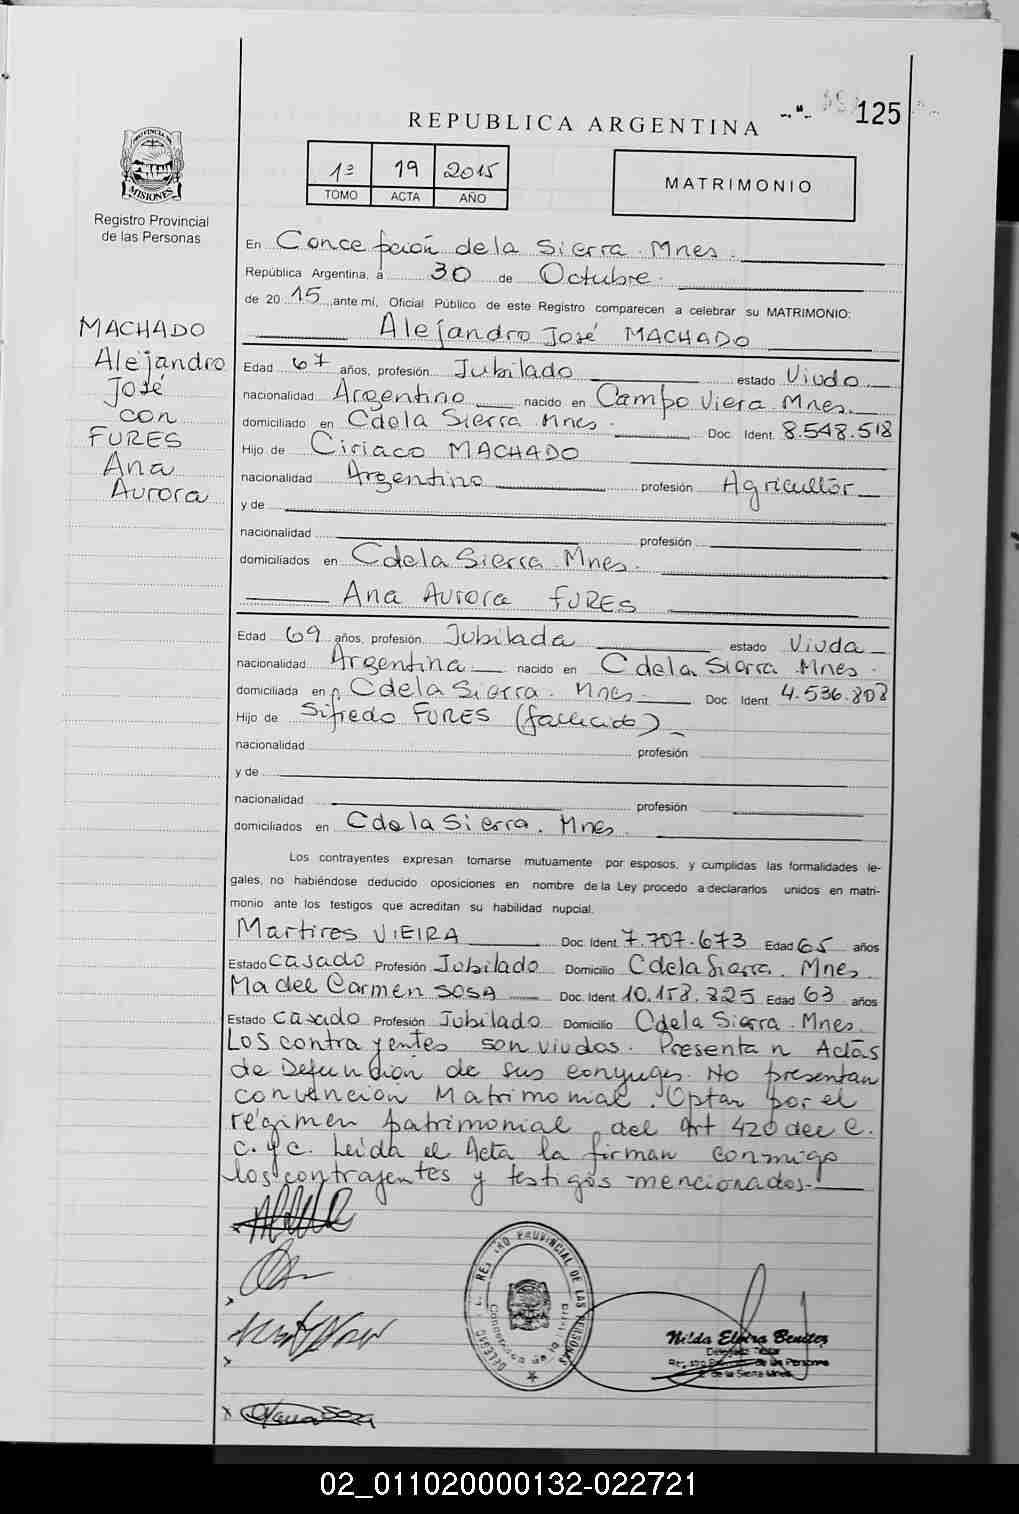 125
REPUBLICA ARGENTINA
PROVINCIA DE MISIONES
Registro Provincial
de las Personas
1ª 19 2015
TOMO ACTA AÑO
MATRIMONIO
MACHADO
Alejandro
José
con
FURES
Ana
Aurora
En Concepción de la Sierra. Mnes.
República Argentina, a 30 de Octubre.
de 2015, ante mí, Oficial Público de este Registro comparecen a celebrar su MATRIMONIO:
Alejandro José MACHADO
Edad 67 años, profesión Jubilado estado Viudo
nacionalidad Argentino nacido en Campo Viera. Mnes.
domiciliado en C de la Sierra Mnes. Doc. Ident. 8.548.518
Hijo de Ciriaco MACHADO
nacionalidad Argentino profesión Agricultor
y de
nacionalidad profesión
domiciliados en C de la Sierra Mnes.
Ana Aurora FURES
Edad 69 años, profesión Jubilada estado Viuda
nacionalidad Argentina nacido en C de la Sierra Mnes.
domiciliada en C de la Sierra. Mnes. Doc. Ident. 4.536.808
Hijo de Sifredo FURES (fallecido)
nacionalidad profesión
y de
nacionalidad profesión
domiciliados en C de la Sierra. Mnes.
Los contrayentes expresan tomarse mutuamente por esposos, y cumplidas las formalidades le-
gales, no habiéndose deducido oposiciones en nombre de la Ley procedo a declararlos unidos en matri-
monio ante los testigos que acreditan su habilidad nupcial.
Martires VIEIRA Doc. Ident. 7.707.673 Edad 65 años
Estado Casado Profesión Jubilado Domicilio C de la Sierra. Mnes.
Ma del Carmen SOSA Doc. Ident. 10.158.825 Edad 63 años
Estado Casado Profesión Jubilado Domicilio C de la Sierra. Mnes.
Los contrayentes son viudos. Presentan Actas
de Defunción de sus conyuges. No presentan
convencion Matrimonial. Optan por el
régimen patrimonial del Art 420 del C.
C. y C. Leida el Acta la firman conmigo
los contrayentes y testigos mencionados.
REGISTRO PROVINCIAL DE LAS PERSONAS
Concepción de la Sierra
Nilda Elvira Benitez
Delegada Titular
Registro Provincial de las Personas
C. de la Sierra Mnes.
02_011020000132-022721